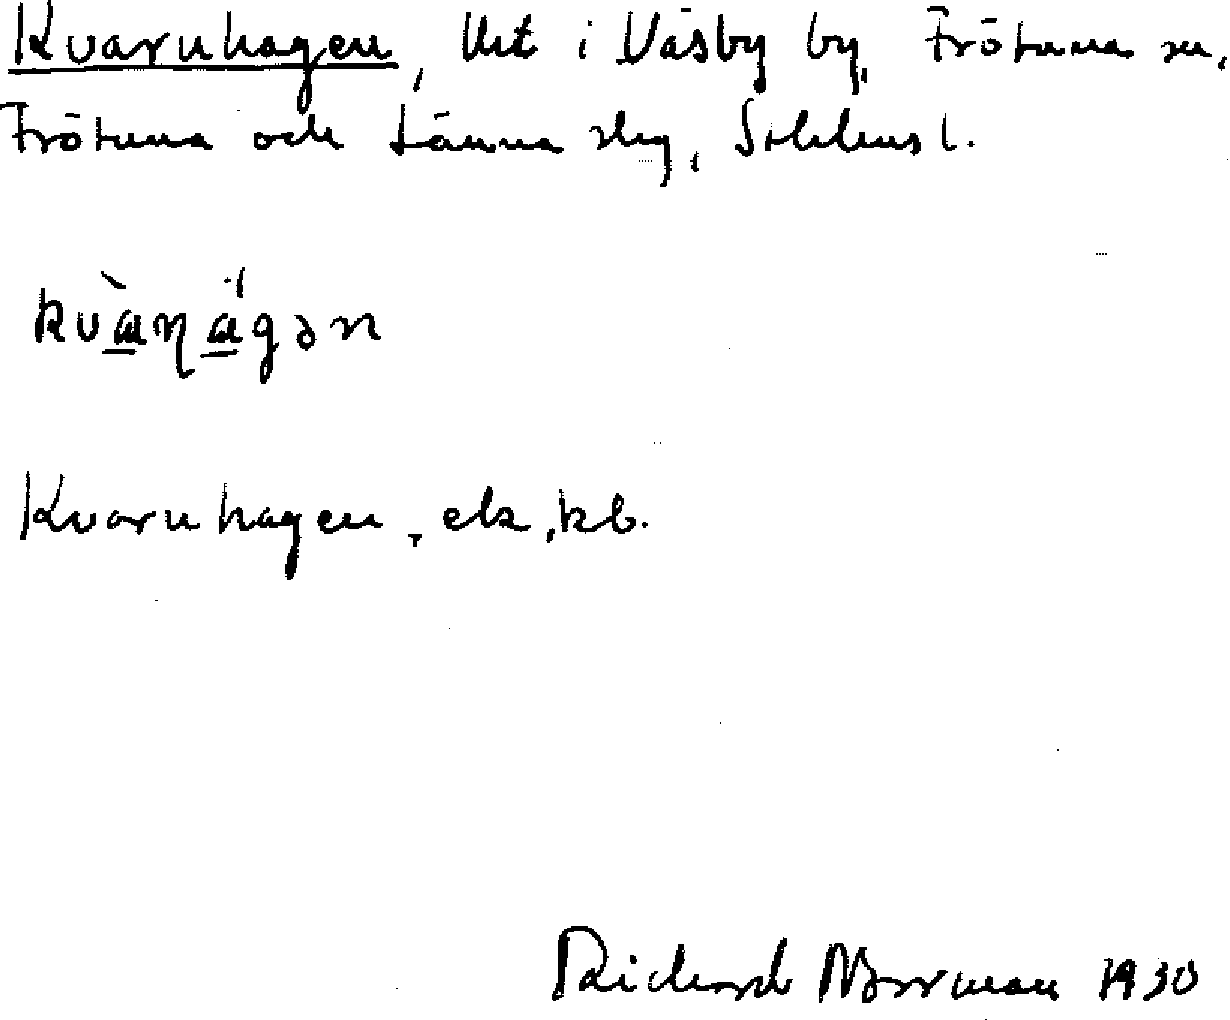 Kvarnhagen, lht i Väsby by, Frötuna sn,
Frötuna och Länna slg, Sthlms l.
kvànágən
Kvarnhagen, ek, kb.
Richard Norrman 1930